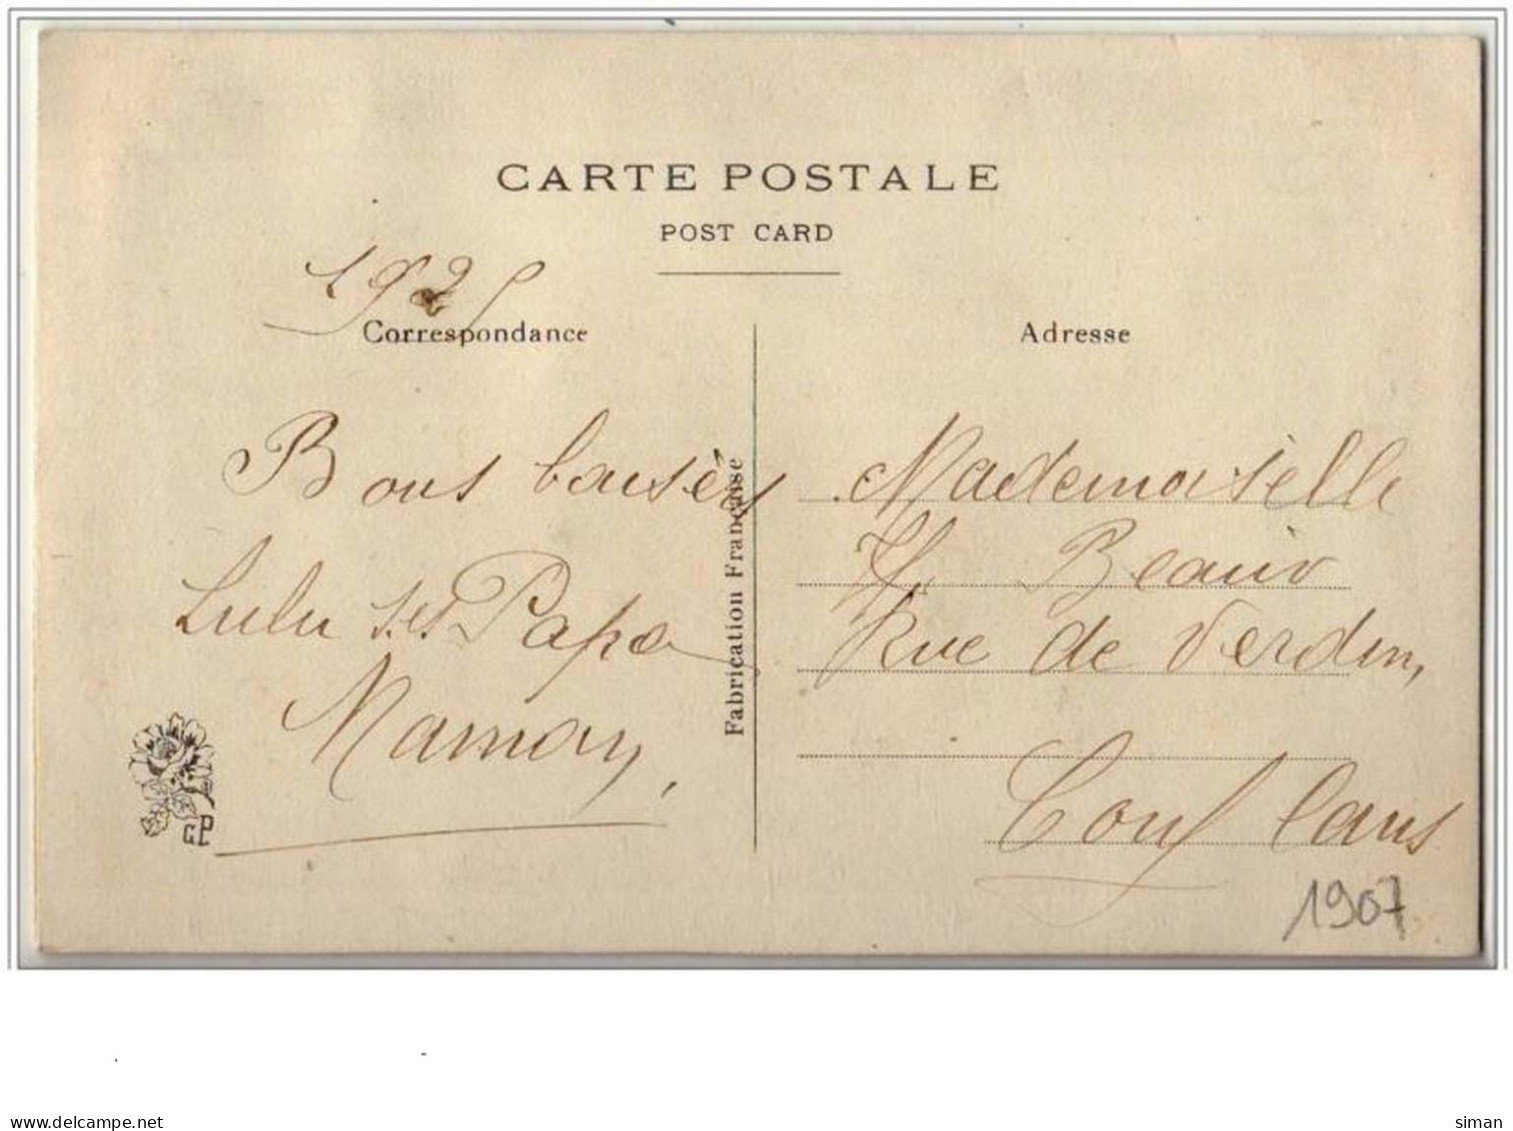 CARTE POSTALE
POST CARD
1925
Correspondance
Bons baisèrs
Lulu ses Papa
Maman,
GP
Fabrication Française
Adresse
Mademoiselle
Beaux
Rue de Verdun,
Conflans
1907
delcampe.net
siman